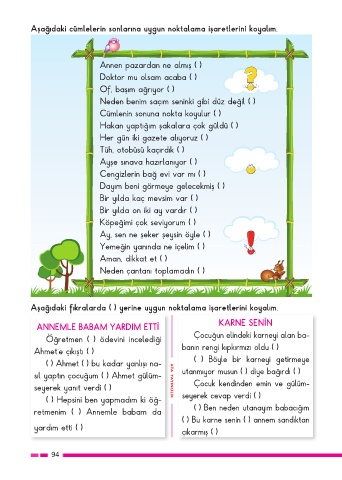 Aşağıdaki cümlelerin sonlarına uygun noktalama işaretlerini koyalım.
Annen pazardan ne almış ( )
Doktor mu olsam acaba ( )
Of, başım ağrıyor ( )
Neden benim saçım seninki gibi düz değil ( )
Cümlenin sonuna nokta koyulur ( )
Hakan yaptığım şakalara çok güldü ( )
Her gün iki gazete alıyoruz ( )
Tüh, otobüsü kaçırdık ( )
Ayşe sınava hazırlanıyor ( )
Cengizlerin bağ evi var mı ( )
Dayım beni görmeye gelecekmiş ( )
Bir yılda kaç mevsim var ( )
Bir yılda on iki ay vardır ( )
Köpeğimi çok seviyorum ( )
Ay, sen ne şeker şeysin öyle ( )
Yemeğin yanında ne içelim ( )
Aman, dikkat et ( )
Neden çantanı toplamadın ( )
Aşağıdaki fıkralarda ( ) yerine uygun noktalama işaretlerini koyalım.
ANNEMLE BABAM YARDIM ETTİ
Öğretmen ( ) ödevini incelediği
Ahmet'e çıkıştı ( )
( ) Ahmet ( ) bu kadar yanlışı na-
sıl yaptın çocuğum ( ) Ahmet gülüm-
seyerek yanıt verdi ( )
( ) Hepsini ben yapmadım ki öğ-
retmenim ( ) Annemle babam da
yardım etti ( )
KARNE SENİN
Çocuğun elindeki karneyi alan ba-
banın rengi kıpkırmızı oldu ( )
( ) Böyle bir karneyi getirmeye
utanmıyor musun ( ) diye bağırdı ( )
Çocuk kendinden emin ve gülüm-
seyerek cevap verdi ( )
( ) Ben neden utanayım babacığım
( ) Bu karne senin ( ) annem sandıktan
çıkarmış ( )
94